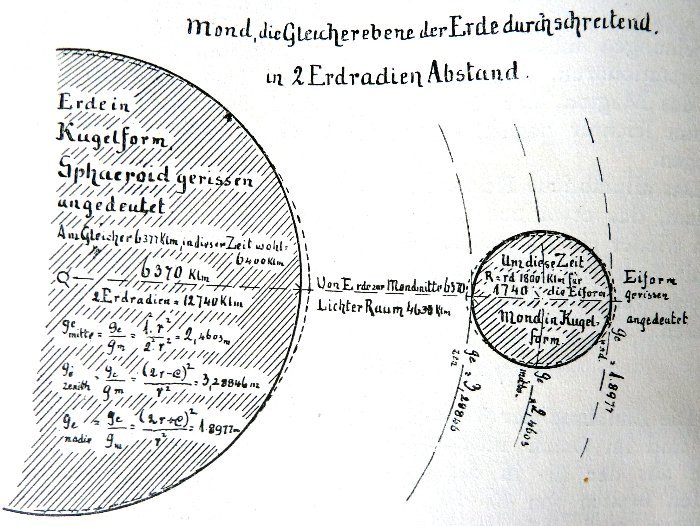 Mond, die Gleicherebene der Erde durchschreitend,
in 2 Erdradien Abstand.
Erde in
Kugelform,
Sphaeroid gerissen
angedeutet
Am Gleicher 6377 Klm, in dieser Zeit wohl:
6400 Klm
6370 Klm
2 Erdradien = 12740 Klm
ge mitte = ge/gm = 1·r²/2²·r² = 2,4603 m
ge zenith = ge/gm = (2r-e)²/r² = 3,28846 m
ge nadir = ge/gm = (2r+e)²/r² = 1.8977 m
Von Erde zur Mondmitte 6370
Lichter Raum 4630 Klm
Um diese Zeit
R = rd 1800 Klm für
1740 die Eiform
Mond in Kugel-
form
Eiform
gerissen
angedeutet
ge zen = 3,28846
ge mitte = 2,4603
ge nad = 1.8977